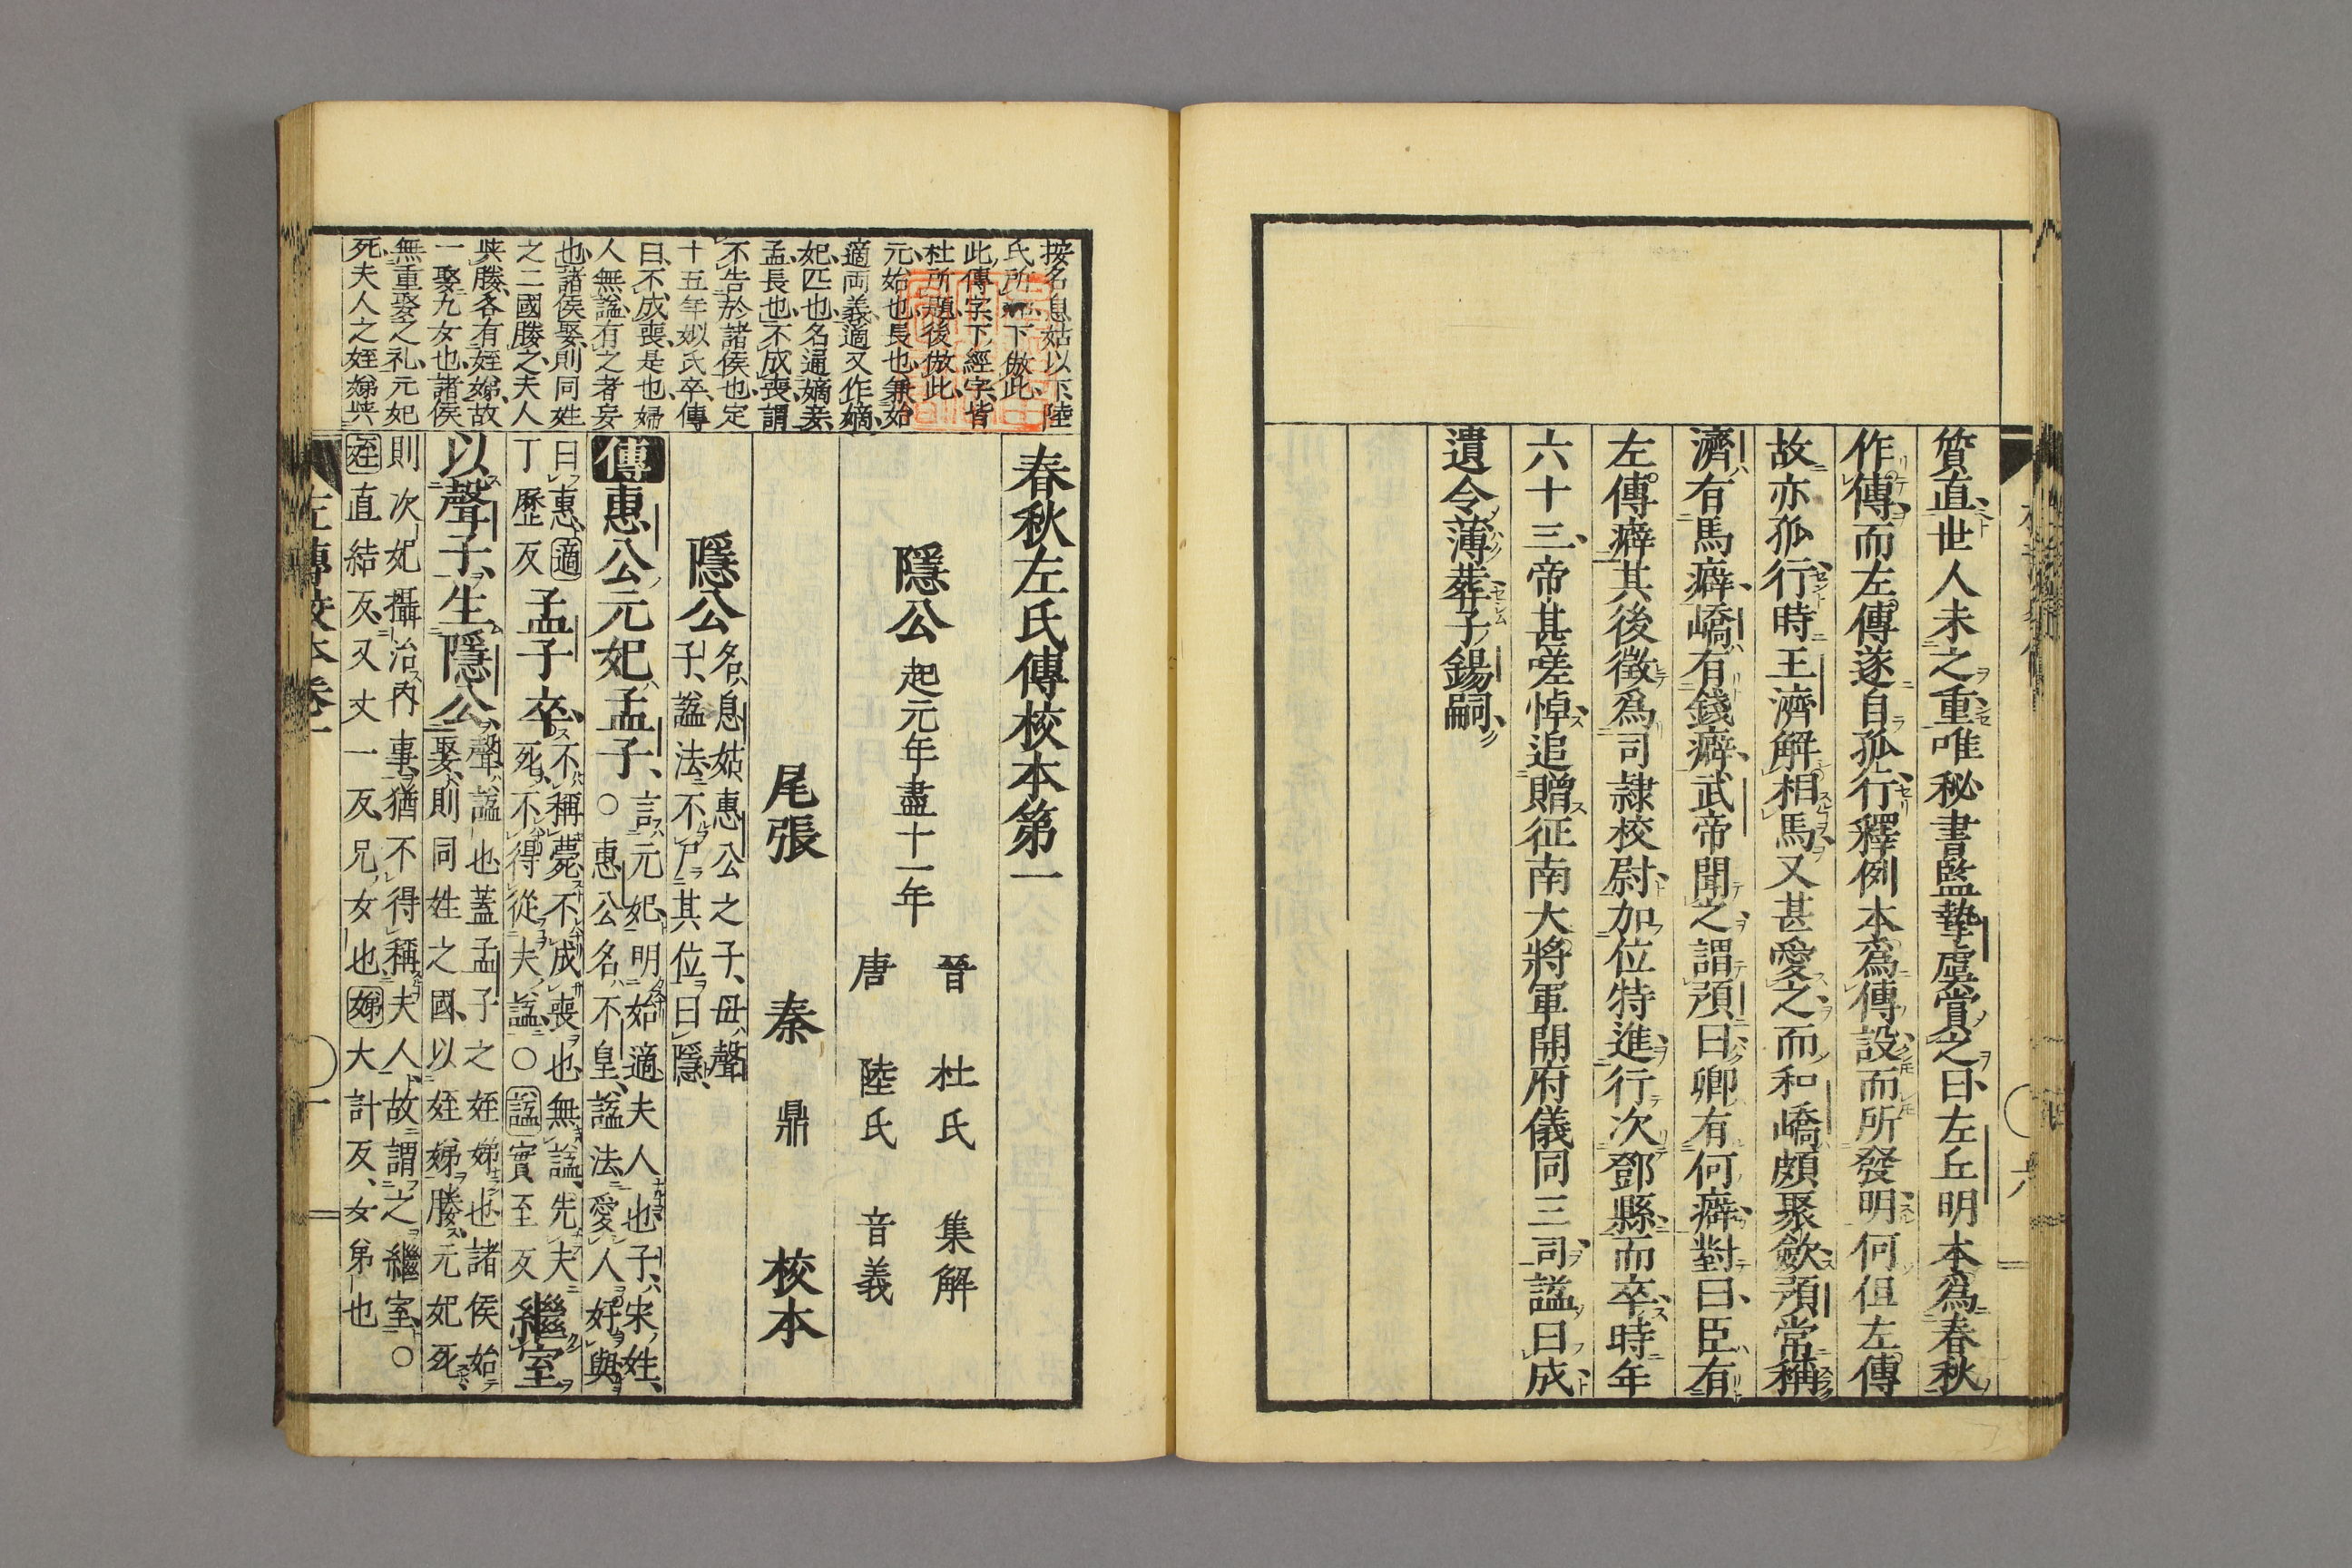 質直世人未之重唯秘書監摯虞賞之曰左丘明本為春秋
作傳而左傳遂自孤行釋例本為傳設而所發明何但左傳
故亦孤行時王濟解相馬又甚愛之而和嶠頗聚斂預常稱
濟有馬癖嶠有錢癖武帝聞之謂預曰卿有何癖對曰臣有
左傳癖其後徵爲司隷校尉加位特進行次鄧縣而卒時年
六十三帝甚嗟悼追贈征南大將軍開府儀同三司諡曰成
遺令薄葬子錫嗣
按名息姑以下陸
氏所下倣此
此傳字下經字皆
杜所題後倣此
元始也長也兼始
適兩義適又作嫡
妃匹也名通嫡妾
孟長也不成喪謂
不告於諸侯也定
十五年姒氏卒傳
曰不成喪是也婦
人無諡有之者妄
也諸侯娶則同姓
之二國媵之夫人
與媵各有姪娣故
一娶九女也諸侯
無重娶之礼元妃
死夫人之姪娣與
春秋左氏傳校本第一
隱公 起元年盡十一年
晉 杜氏 集解
唐 陸氏 音義
尾張 秦 鼎 校本
隱公 名息姑惠公之子母聲
子諡法不尸其位曰隱
傳惠公元妃孟子 ○ 言元妃明始適夫人也子宋姓
惠公名不皇諡法愛人好與
曰惠適
丁歷反
孟子卒 不稱薨不成喪也無諡先夫
死不得從夫諡○諡實至反
繼室
以聲子生隱公 聲諡也蓋孟子之姪娣也諸侯始
娶則同姓之國以姪娣媵元妃死
則次妃攝治內事猶不得稱夫人故謂之繼室○
姪直結反又丈一反兄女也娣大計反女弟也
左傳校本卷一
一